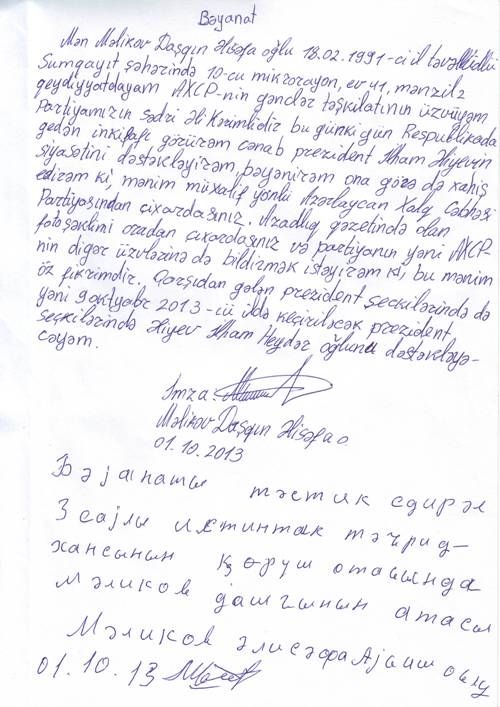 Bəyanat
Mən Məlikov Daşqın Əlisəfa oğlu 18.02.1991-ci il təvəllüdlü
Sumqayıt şəhərində 10-cu mikrorayon, ev 41, mənzil 2
qeydiyyatdayam AXCP-nin gənclər təşkilatının üzvüyəm
Partiyamızın sədri Əli Kərimlidir bu günki gün Respublikada
gedən inkişafı görürəm cənab prezident İlham Əliyevin
siyasətini dəstəkləyirəm, bəyənirəm ona görə də xahiş
edirəm ki, mənim müxalif yönlü Azərbaycan Xalq Cəbhəsi
Partiyasından çıxardasınız. Azadlıq qəzetində olan
fotoşəklimi ordan çıxardasınız və partiyanın yəni AXCP-
nin digər üzvlərinə də bildirmək istəyirəm ki, bu mənim
öz fikrimdir. Qarşıdan gələn prezident seçkilərində də
yəni 9 oktyabr 2013-cü ildə keçiriləcək prezident
seçkilərində Əliyev İlham Heydər oğlunu dəstəkləyə-
cəyəm.
İmza:
Məlikov Daşqın Əlisəfa o
01.10.2013
Бәјанаты тәстик едирәм
3 сајлы истинтак тәҹрид-
ханасынын ҝөрүш отағында
Мәликов Дашгынын атасы
Мәликов Әлисәфа оғлу
01.10.13